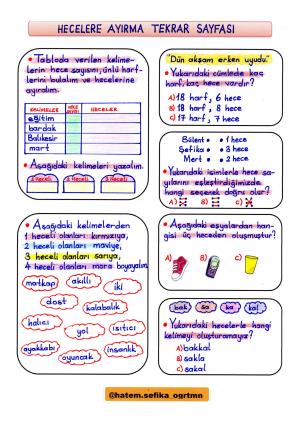 HECELERE AYIRMA TEKRAR SAYFASI
• Tabloda verilen kelime-
lerin hece sayısını, ünlü harf-
lerini bulalım ve hecelerine
ayıralım.
KELİMELER HECE SAYISI HECELER
eğitim
bardak
Balıkesir
mart
• Aşağıdaki kelimeleri yazalım.
1 Heceli 2 Heceli 3 Heceli
• Aşağıdaki kelimelerden
1 heceli olanları kırmızıya,
2 heceli olanları maviye,
3 heceli olanları sarıya,
4 heceli olanları mora boyayalım.
matkap akıllı iki
dost kalabalık
halıcı yol ısıtıcı
ayakkabı oyuncak insanlık
"Dün akşam erken uyudu."
• Yukarıdaki cümlede kaç
harf, kaç hece vardır?
A) 18 harf, 6 hece
B) 18 harf, 8 hece
C) 17 harf, 7 hece
Bülent • • 1 hece
Şefika • • 3 hece
Mert • • 2 hece
• Yukarıdaki isimlerle hece sa-
yılarını eşleştirdiğimizde
hangi seçenek doğru olur?
A) B) C)
• Aşağıdaki eşyalardan han-
gisi üç heceden oluşmuştur?
A) B) C)
bak sa ka kal
• Yukarıdaki hecelerle hangi
kelimeyi oluşturamayız?
A) bakkal
B) sakla
C) sakal
@hatem.sefika_ogrtmn